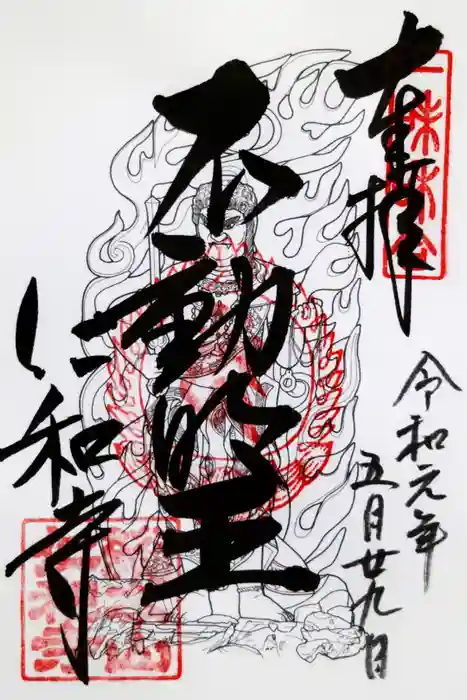 奉拝
令和元年
五月廿九日
不動明王
仁和寺